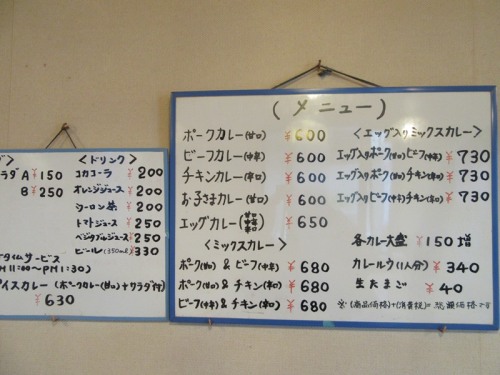 (メニュー)
ポークカレー(甘口) ¥600
ビーフカレー(中辛) ¥600
チキンカレー(辛口) ¥600
お子さまカレー(甘口) ¥600
エッグカレー(甘口 中辛 辛口) ¥650
<ミックスカレー>
ポーク(甘口)&ビーフ(中辛) ¥680
ポーク(甘口)&チキン(辛口) ¥680
ビーフ(中辛)&チキン(辛口) ¥680
<エッグ入りミックスカレー>
エッグ入りポーク(甘口)ビーフ(中辛) ¥730
エッグ入りポーク(甘口)チキン(辛口) ¥730
エッグ入りビーフ(中辛)チキン(辛口) ¥730
各カレー大盛 ¥150増
カレールウ(1人分) ¥340
生たまご ¥40
※(商品価格)+(消費税)=総額価格です
ラダA ¥150
B ¥250
<ドリンク>
コカコーラ ¥200
オレンジジュース ¥200
ウーロン茶 ¥200
トマトジュース ¥250
ベジタブルジュース ¥250
ビール(350ml) ¥330
タイムサービス
M11:00〜PM1:30)
イスカレー(ポークカレー(甘口)+サラダ付)
¥630